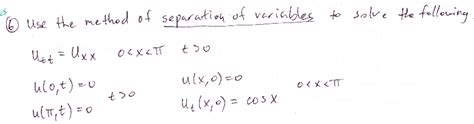 ⑥ Use the method of separation of variables to solve the following
u_tt = u_xx 0<x<π t>0
u(0,t)=0 t>0 u(x,0)=0 0<x<π
u(π,t)=0 u_t(x,0) = cos x